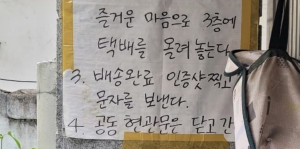 즐거운 마음으로 3층에
택배를 올려놓는다
3. 배송완료 인증샷 찍고
문자를 보낸다.
4. 공동현관문은 닫고 간